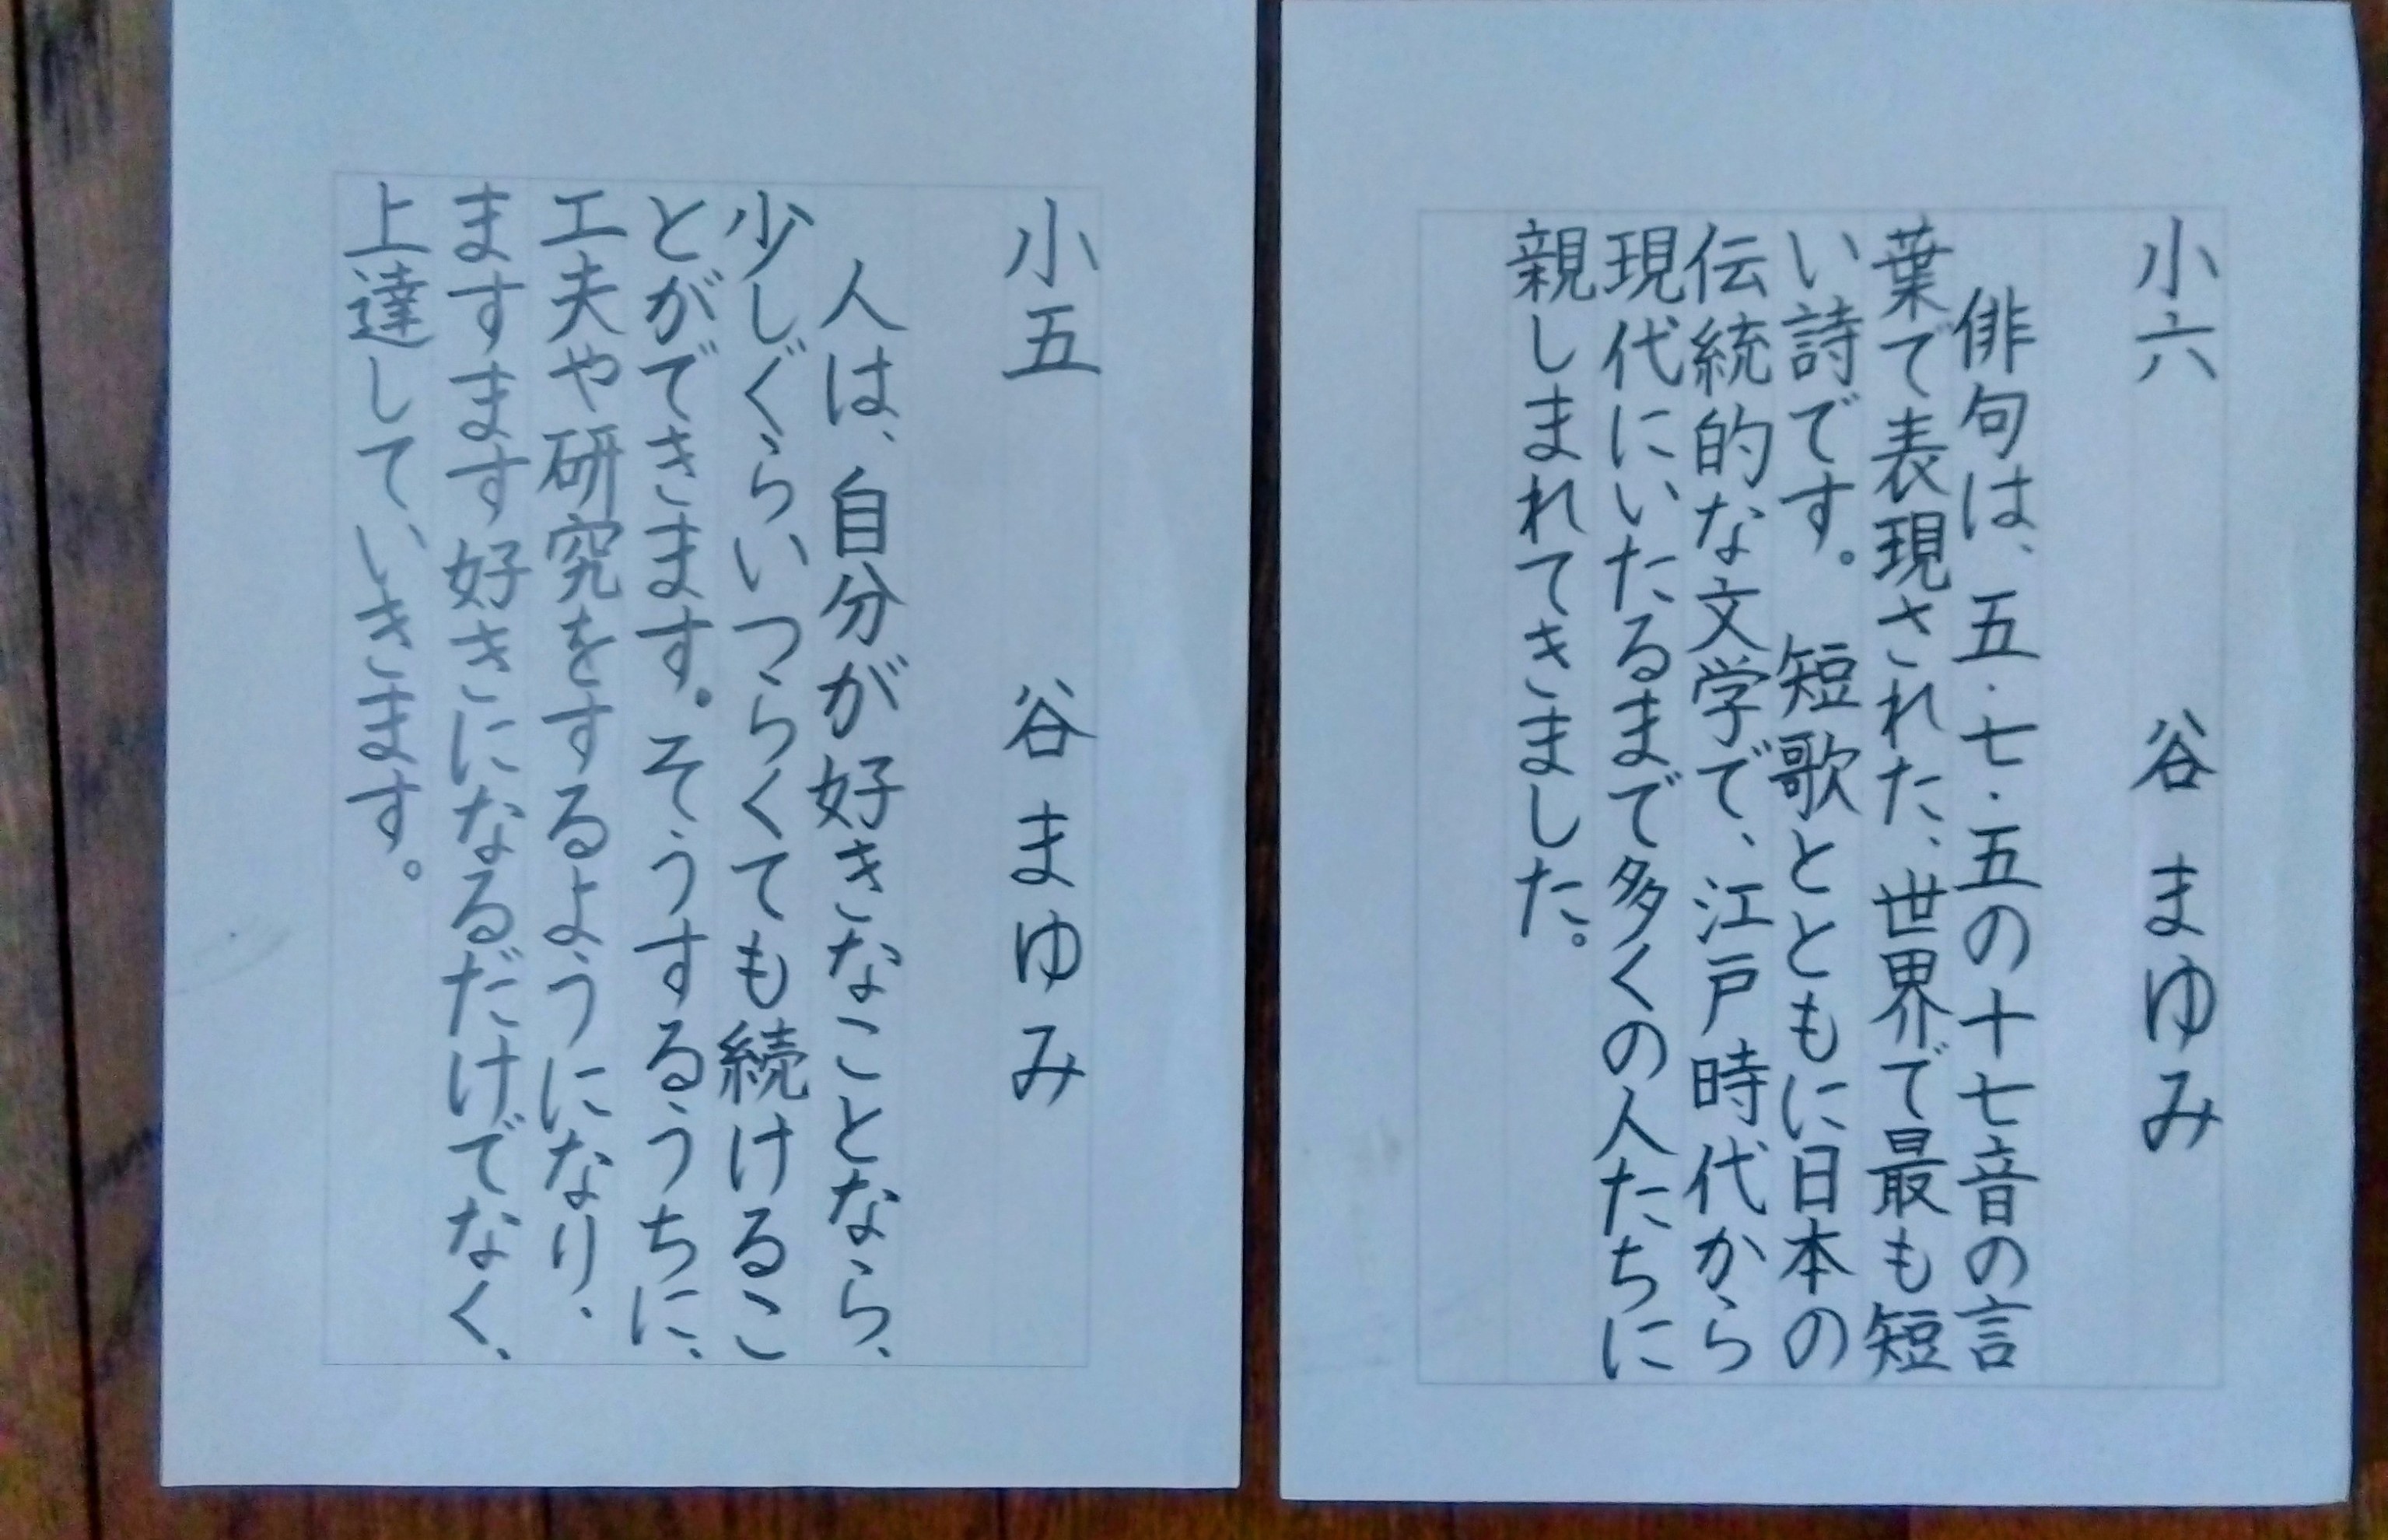 小六　谷まゆみ
俳句は、五・七・五の十七音の言
葉で表現された、世界で最も短
い詩です。短歌とともに日本の
伝統的な文学で、江戸時代から
現代にいたるまで多くの人たちに
親しまれてきました。
小五　谷まゆみ
人は、自分が好きなことなら、
少しぐらいつらくても続けるこ
とができます。そうするうちに、
工夫や研究をするようになり、
ますます好きになるだけでなく、
上達していきます。